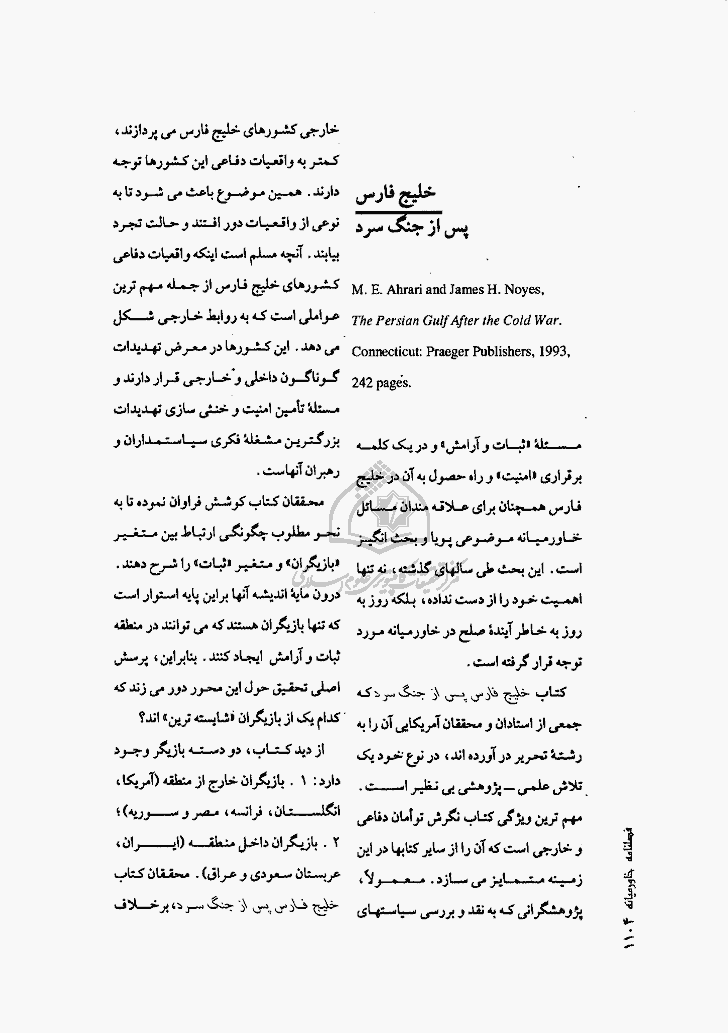 خلیج فارس
پس از جنگ سرد
M. E. Ahrari and James H. Noyes,
The Persian Gulf After the Cold War.
Connecticut: Praeger Publishers, 1993,
242 pages.
مسئلهٔ «ثبات و آرامش» و در یک کلمه
برقراری «امنیت» و راه حصول به آن در خلیج
فارس همچنان برای علاقه مندان مسائل
خاورمیانه موضوعی پویا و بحث انگیز
است. این بحث طی سالهای گذشته، نه تنها
اهمیت خود را از دست نداده، بلکه روز به
روز به خاطر آیندهٔ صلح در خاورمیانه مورد
توجه قرار گرفته است.
کتاب خلیج فارس پس از جنگ سرد که
جمعی از استادان و محققان آمریکایی آن را به
رشتهٔ تحریر در آورده اند، در نوع خود یک
تلاش علمی ـ پژوهشی بی نظیر است.
مهم ترین ویژگی کتاب نگرش توأمان دفاعی
و خارجی است که آن را از سایر کتابها در این
زمینه متمایز می سازد. معمولاً،
پژوهشگرانی که به نقد و بررسی سیاستهای
خارجی کشورهای خلیج فارس می پردازند،
کمتر به واقعیات دفاعی این کشورها توجه
دارند. همین موضوع باعث می شود تا به
نوعی از واقعیات دور افتند و حالت تجرد
بیابند. آنچه مسلم است اینکه واقعیات دفاعی
کشورهای خلیج فارس از جمله مهم ترین
عواملی است که به روابط خارجی شکل
می دهد. این کشورها در معرض تهدیدات
گوناگون داخلی و خارجی قرار دارند و
مسئلهٔ تأمین امنیت و خنثی سازی تهدیدات
بزرگترین مشغلهٔ فکری سیاستمداران و
رهبران آنهاست.
محققان کتاب کوشش فراوان نموده تا به
نحو مطلوب چگونگی ارتباط بین متغیر
«بازیگران» و متغیر «ثبات» را شرح دهند.
درون مایهٔ اندیشه آنها براین پایه استوار است
که تنها بازیگران هستند که می توانند در منطقه
ثبات و آرامش ایجاد کنند. بنابراین، پرسش
اصلی تحقیق حول این محور دور می زند که
کدام یک از بازیگران «شایسته ترین» اند؟
از دید کتاب، دو دسته بازیگر وجود
دارد: ۱. بازیگران خارج از منطقه (آمریکا،
انگلستان، فرانسه، مصر و سوریه)؛
۲. بازیگران داخل منطقه (ایران،
عربستان سعودی و عراق). محققان کتاب
خلیج فارس پس از جنگ سرد، برخلاف
فصلنامه خاورمیانه ۱۱۰۴